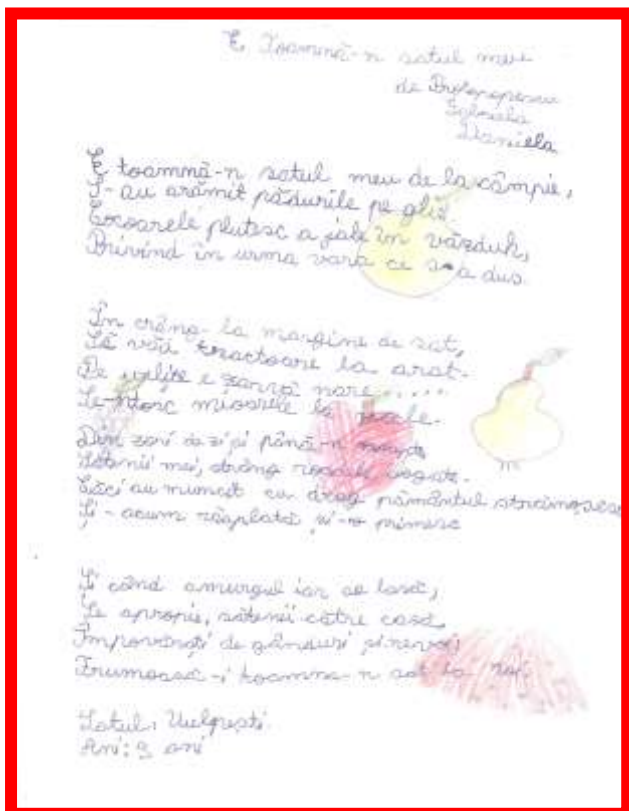 E Toamnă-n satul meu
de Protopopescu
Gabriela
Daniela
E toamnă-n satul meu de la câmpie,
S-au arămit pădurile pe glie
Cocoarele plutesc a jale în văzduh,
Privind în urma vara ce s-a dus.
În crâng la margine de sat,
Să văd tractoare la arat.
Pe uliţe e zarvă mare.....
Se-ntorc mioarele la
Din zori de zi şi până-n noapte
Sătenii mei, strâng roadele bogate.
Căci au muncit cu drag pământul strămoşesc
Şi-acum răsplată şi-o primesc
Şi când amurgul iar se lasă,
Se apropie, sătenii către casă,
Împovăraţi de gânduri şi nevoi,
Frumoasă-i toamna-n sat la noi.
Satul: Vulpeşti
Ani: 9 ani